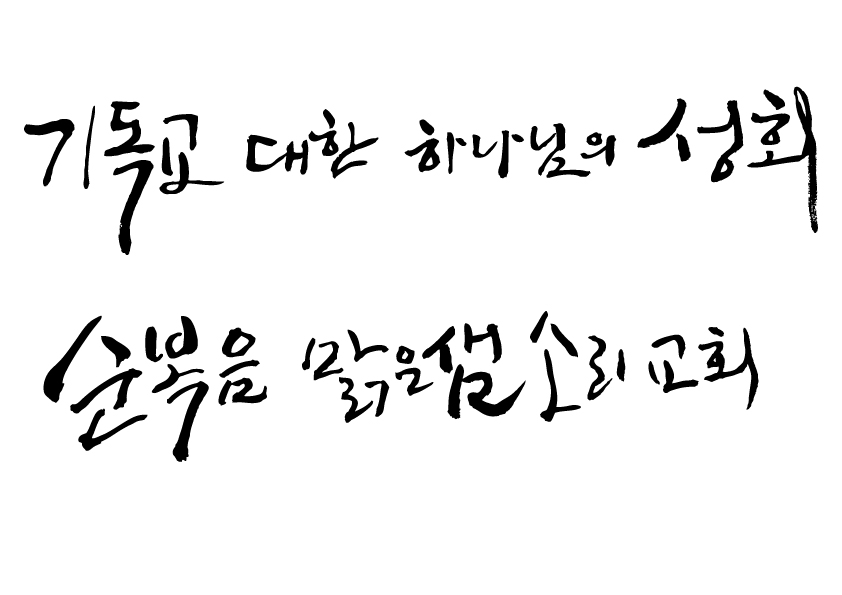 기독교 대한 하나님의 성회
순복음 맑은샘 소리 교회